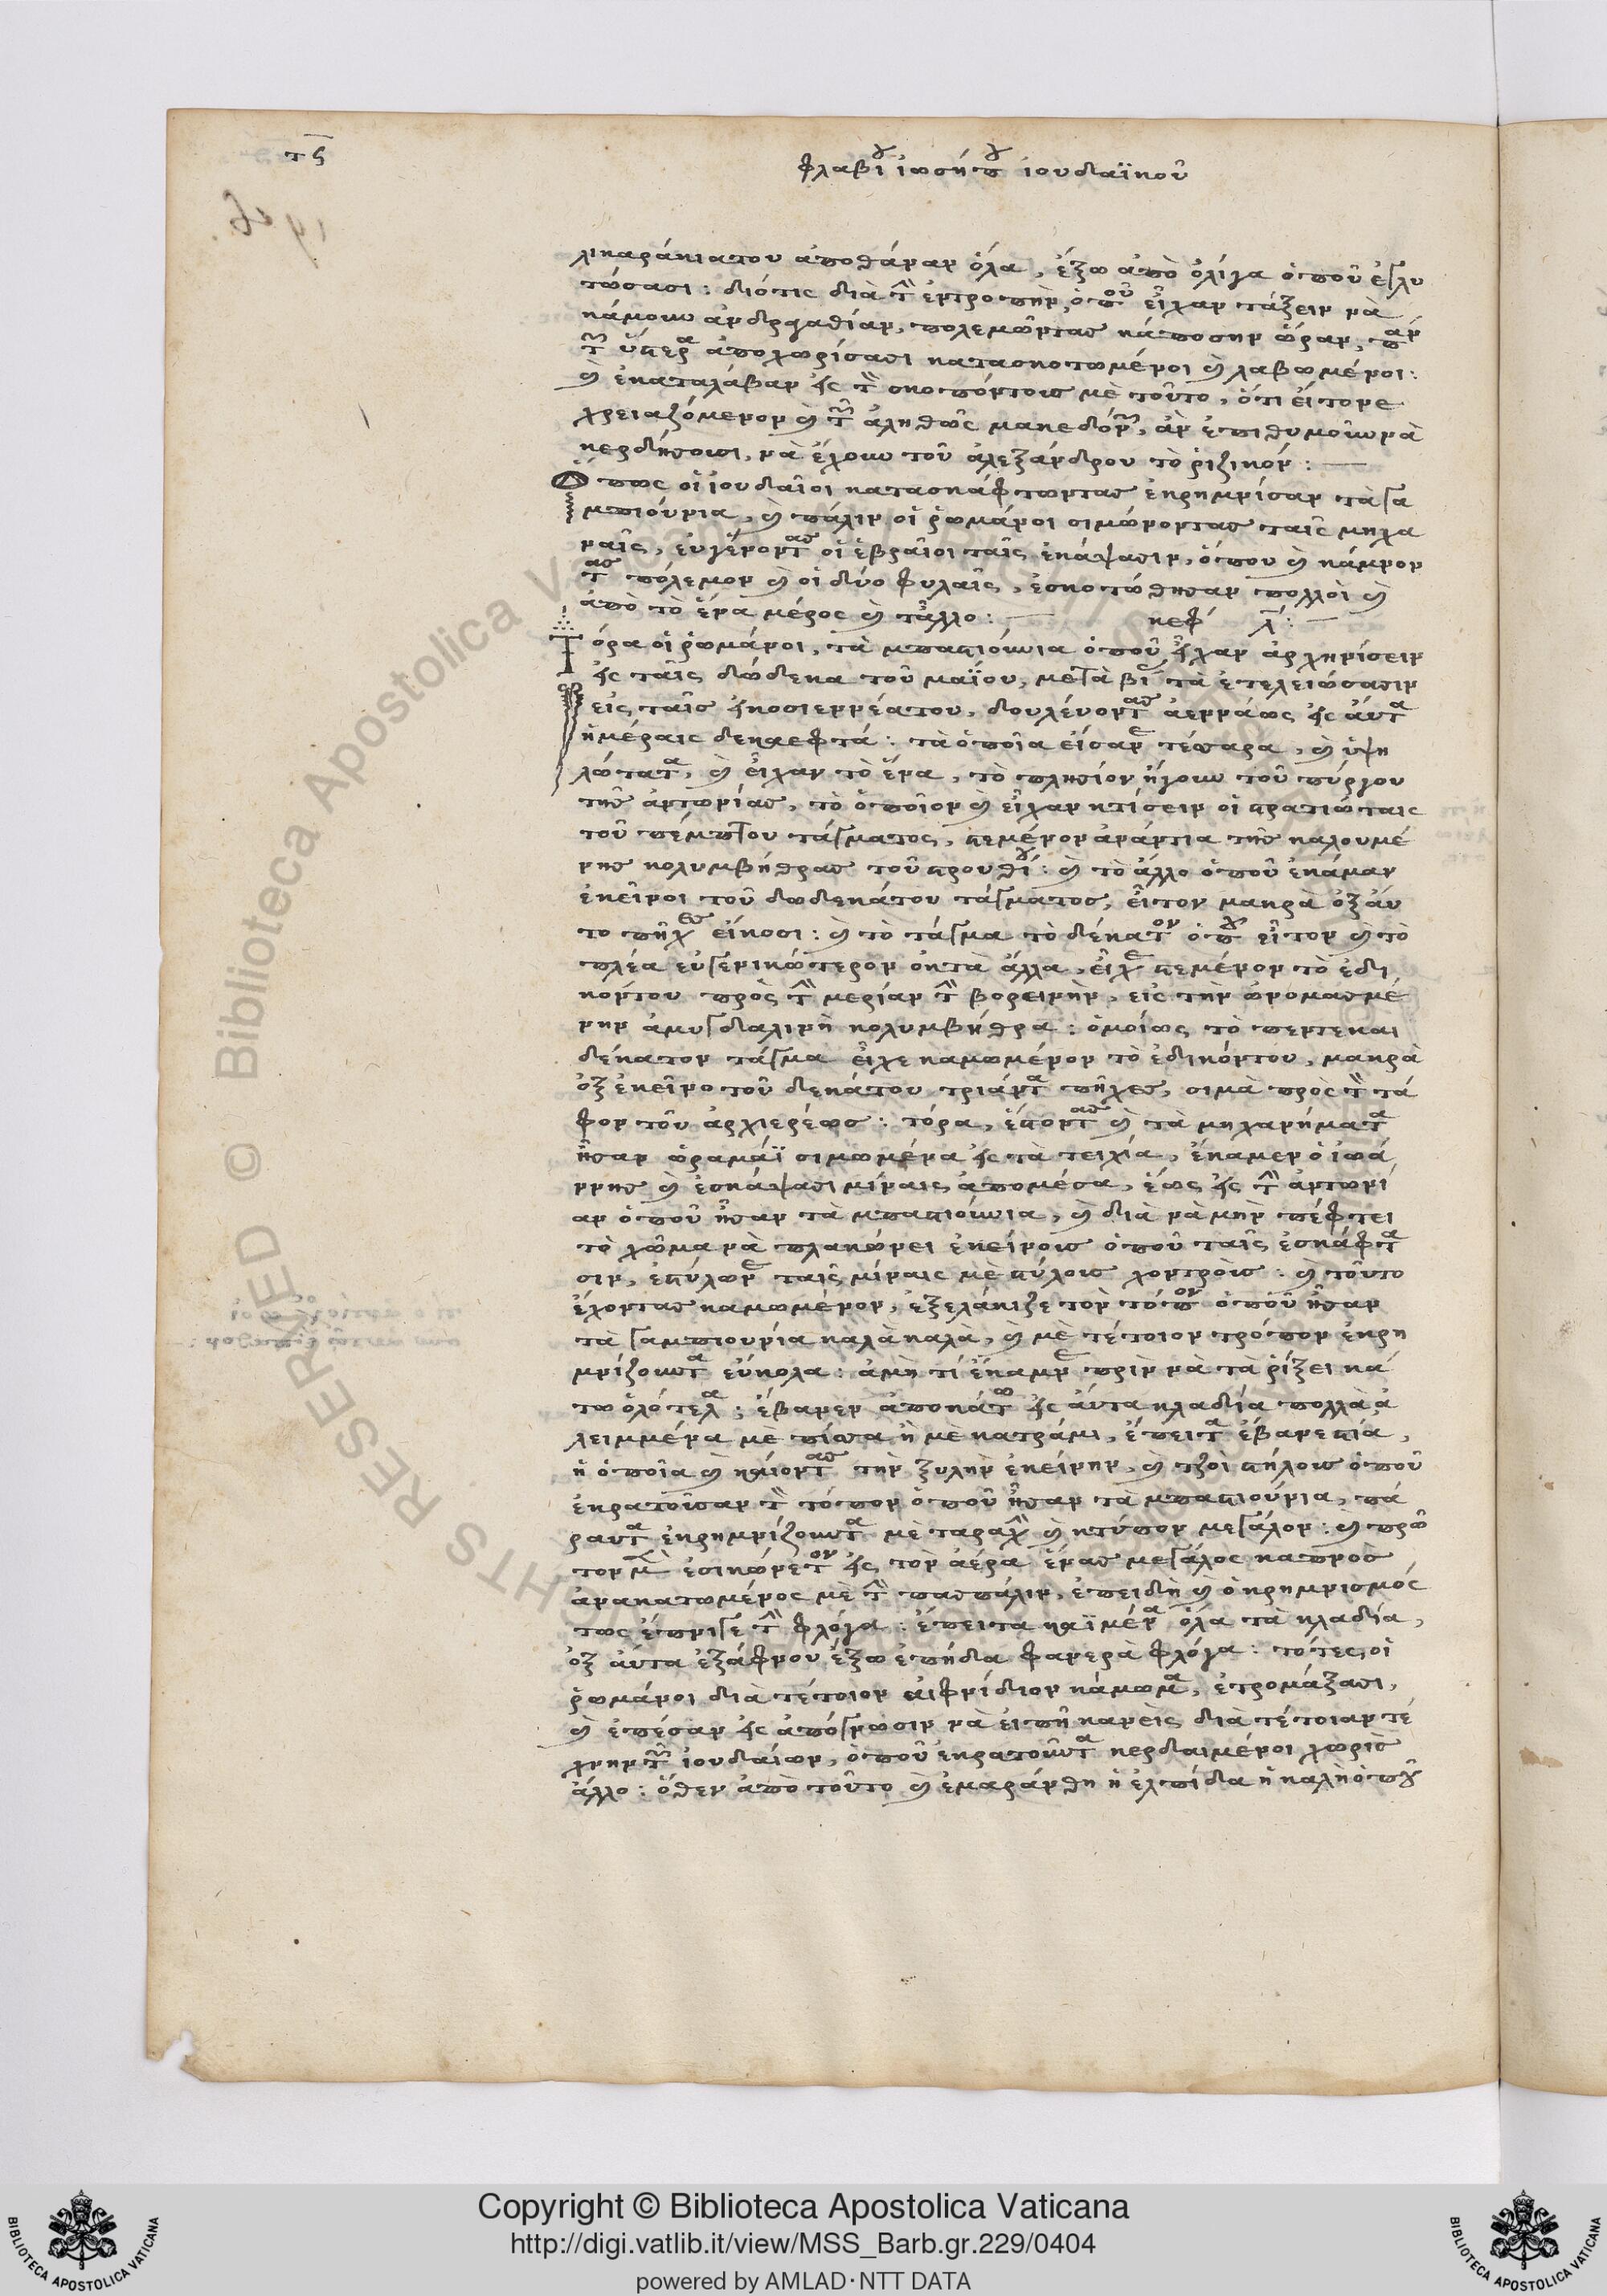 τϛ
φλαβίου ἰωσήπου ἰουδαϊκοῦ
λικαράκιατου ἀποθάναν ὅλα, ἔξω ἀπὸ ὀλίγα ὁποῦ ἐγλυ
τώσασι: διότις διὰ τὴν ἐντροπὴν, ὁποῦ εἶχαν τάξειν νὰ
κάμουν ἀνδραγαθίαν, πολεμῶντας κάποσην ὥραν,
ὕστερα ἀποχωρίσασι κατασκοτωμένοι καὶ λαβωμένοι:
καὶ ἐκαταλάβαν εἰς τὸ σκοπόντους μὲ τοῦτο, ὅτι εἴτονε
χρειαζόμενον καὶ τῶν ἀληθῶς μακεδόνων, ἂν ἐπιθυμοῦν νὰ
κερδήσουσι, νὰ ἔχουν τοῦ ἀλεξάνδρου τὸ ῥιζικόν:
Ὅπως οἱ ἰουδαῖοι κατασκάφτωντας ἐκρημνίσαν τὰ γα
μπιόνια, καὶ πάλιν οἱ ῥωμάνοι σιμώνοντας ταῖς μηχα
ναῖς, εὐγένοντας οἱ ἑβραῖοι ταῖς ἐκάψασιν, ὅπου καὶ κάμνον
τας πόλεμον καὶ οἱ δύο φυλαῖς, ἐσκοτώθησαν πολλοὶ καὶ
ἀπὸ τὸ ἕνα μέρος καὶ τἄλλο: κεφ λ:
Τόρα οἱ ῥωμάνοι, τὰ μπαστιούνια ὁποῦ εἶχαν ἀρχηνίσειν
εἰς ταῖς δώδεκα τοῦ μαΐου, μετὰ βία τὰ ἐτελειώσασιν
εἰς ταῖς εἰκοσιεννέατου, δουλένοντας ἀεννάως εἰς αὐτὰ
ἡμέραις δεκαεφτά: τὰ ὁποῖα εἴσανε τέσσαρα, καὶ ὑψη
λώτατα, καὶ εἶχαν τὸ ἕνα, τὸ πλησίον ἤγουν τοῦ πύργου
τῆς ἀντωνίας, τὸ ὁποῖον καὶ εἶχαν κτίσειν οἱ στρατιώταις
τοῦ πέμπτου τάγματος, στεμένον ἀνάντια τῆς καλουμέ
νης κολυμβήθρας τοῦ στρουθίου: καὶ τὸ ἄλλο ὁποῦ ἐκάμαν
ἐκεῖνοι τοῦ δωδεκάτου τάγματος, εἶτον μακρὰ ὀξ αὐ
το πήχες εἴκοσι: καὶ τὸ τάγμα τὸ δέκατον ὁποῦ εἶτον καὶ τὸ
πλέα εὐγενικώτερον ὀκτὰ ἄλλα, εἶχε στεμένον τὸ ἐδι
κόντου πρὸς τὴν μερίαν τὴν βορεινὴν, εἰς τὴν ὠνομασμέ
νην ἀμυγδαλινὴ κολυμβήθρα: ὁμοίως τὸ πεντεκαι
δέκατον τάγμα εἶχε καμωμένον τὸ ἐδικόντου, μακρὰ
ὀξ ἐκεῖνο τοῦ δεκάτου τριάντα πῆχες, σιμὰ πρὸς τὸ τά
φον τοῦ ἀρχιερέως: τόρα, ἔστοντας καὶ τὰ μηχανήματα
ἦσαν ὡραμάϊ σιμωμένα εἰς τὰ τειχία, ἔκαμεν ὁ ἰωά
ννης καὶ ἐσκάψασι μίναις ἀπομέσα, ἕως εἰς τὴν ἀντωνί
αν ὁποῦ ἦσαν τὰ μπαστιούνια, καὶ διὰ νὰ μὴν πέφτει
τὸ χῶμα νὰ πλακώνει ἐκείνους ὁποῦ ταῖς ἐσκάφτα
σιν, ἐστύλωνε ταῖς μίναις μὲ στύλους χοντροὺς: καὶ τοῦτο
ἔχοντας καμωμένον, ἐξελάκιζε τὸν τόπον ὁποῦ ἦσαν
τὰ γαμπιουνία καλὰ καλὰ, καὶ μὲ τέτοιον τρόπον ἐκρη
μνίζουντα εὔκολα: ἀμὴ τί ἔκαμνε πρὶν νὰ τὰ ῥίξει κά
τω ὁλότελα; ἔβανεν ἀποκάτω εἰς αὐτα κλαδία πολλὰ ἀ
λειμμένα μὲ πίσσα ἢ μὲ κατράμι, ἔπειτα ἔβανε στιά,
ἡ ὁποῖα καὶ καίοντας τὴν ξυλὴν ἐκείνην, καὶ τζοὶ στήλους ὁποῦ
ἐκρατοῦσαν τὸ τόπον ὁποῦ ἦσαν τὰ μπαστιούνια, πά
ραυτα ἐκρημνίζουντα μὲ ταραχὴν καὶ κτύπον μεγάλον: καὶ πρῶ
τον μὲν ἐσικώνετον εἰς τὸν ἀέρα ἕνας μεγάλος καπνὸς
ἀνακατωμένος μὲ τὴν πασπάλην, ἐπειδὴ καὶ ὁ κρημνισμός
τως ἔπνιγε τὴν φλόγα: ἔπειτα καϊμένα ὅλα τὰ κλαδία,
ὀξ αὐτα ἐξάφνου ἔξω ἐπήδα φανερὰ φλόγα: τότες οἱ
ῥωμάνοι διὰ τέτοιον αἰφνίδιον κάμωμα, ἐτρομάξασι,
καὶ ἐπέσαν εἰς ἀπόγνωσιν νὰ εἰπῇ κανεὶς διὰ τέτοιαν τέ
χνην τῶν ἰουδαίων, ὁποῦ ἐκρατοῦντα κερδαιμένοι χωρὶς
ἄλλο: ὅθεν ἀπὸ τοῦτο καὶ ἐμαράνθη ἡ ἐλπίδα ἡ καλὴ ὁποῦ
Copyright © Biblioteca Apostolica Vaticana
http://digi.vatlib.it/view/MSS_Barb.gr.229/0404
powered by AMLAD·NTT DATA